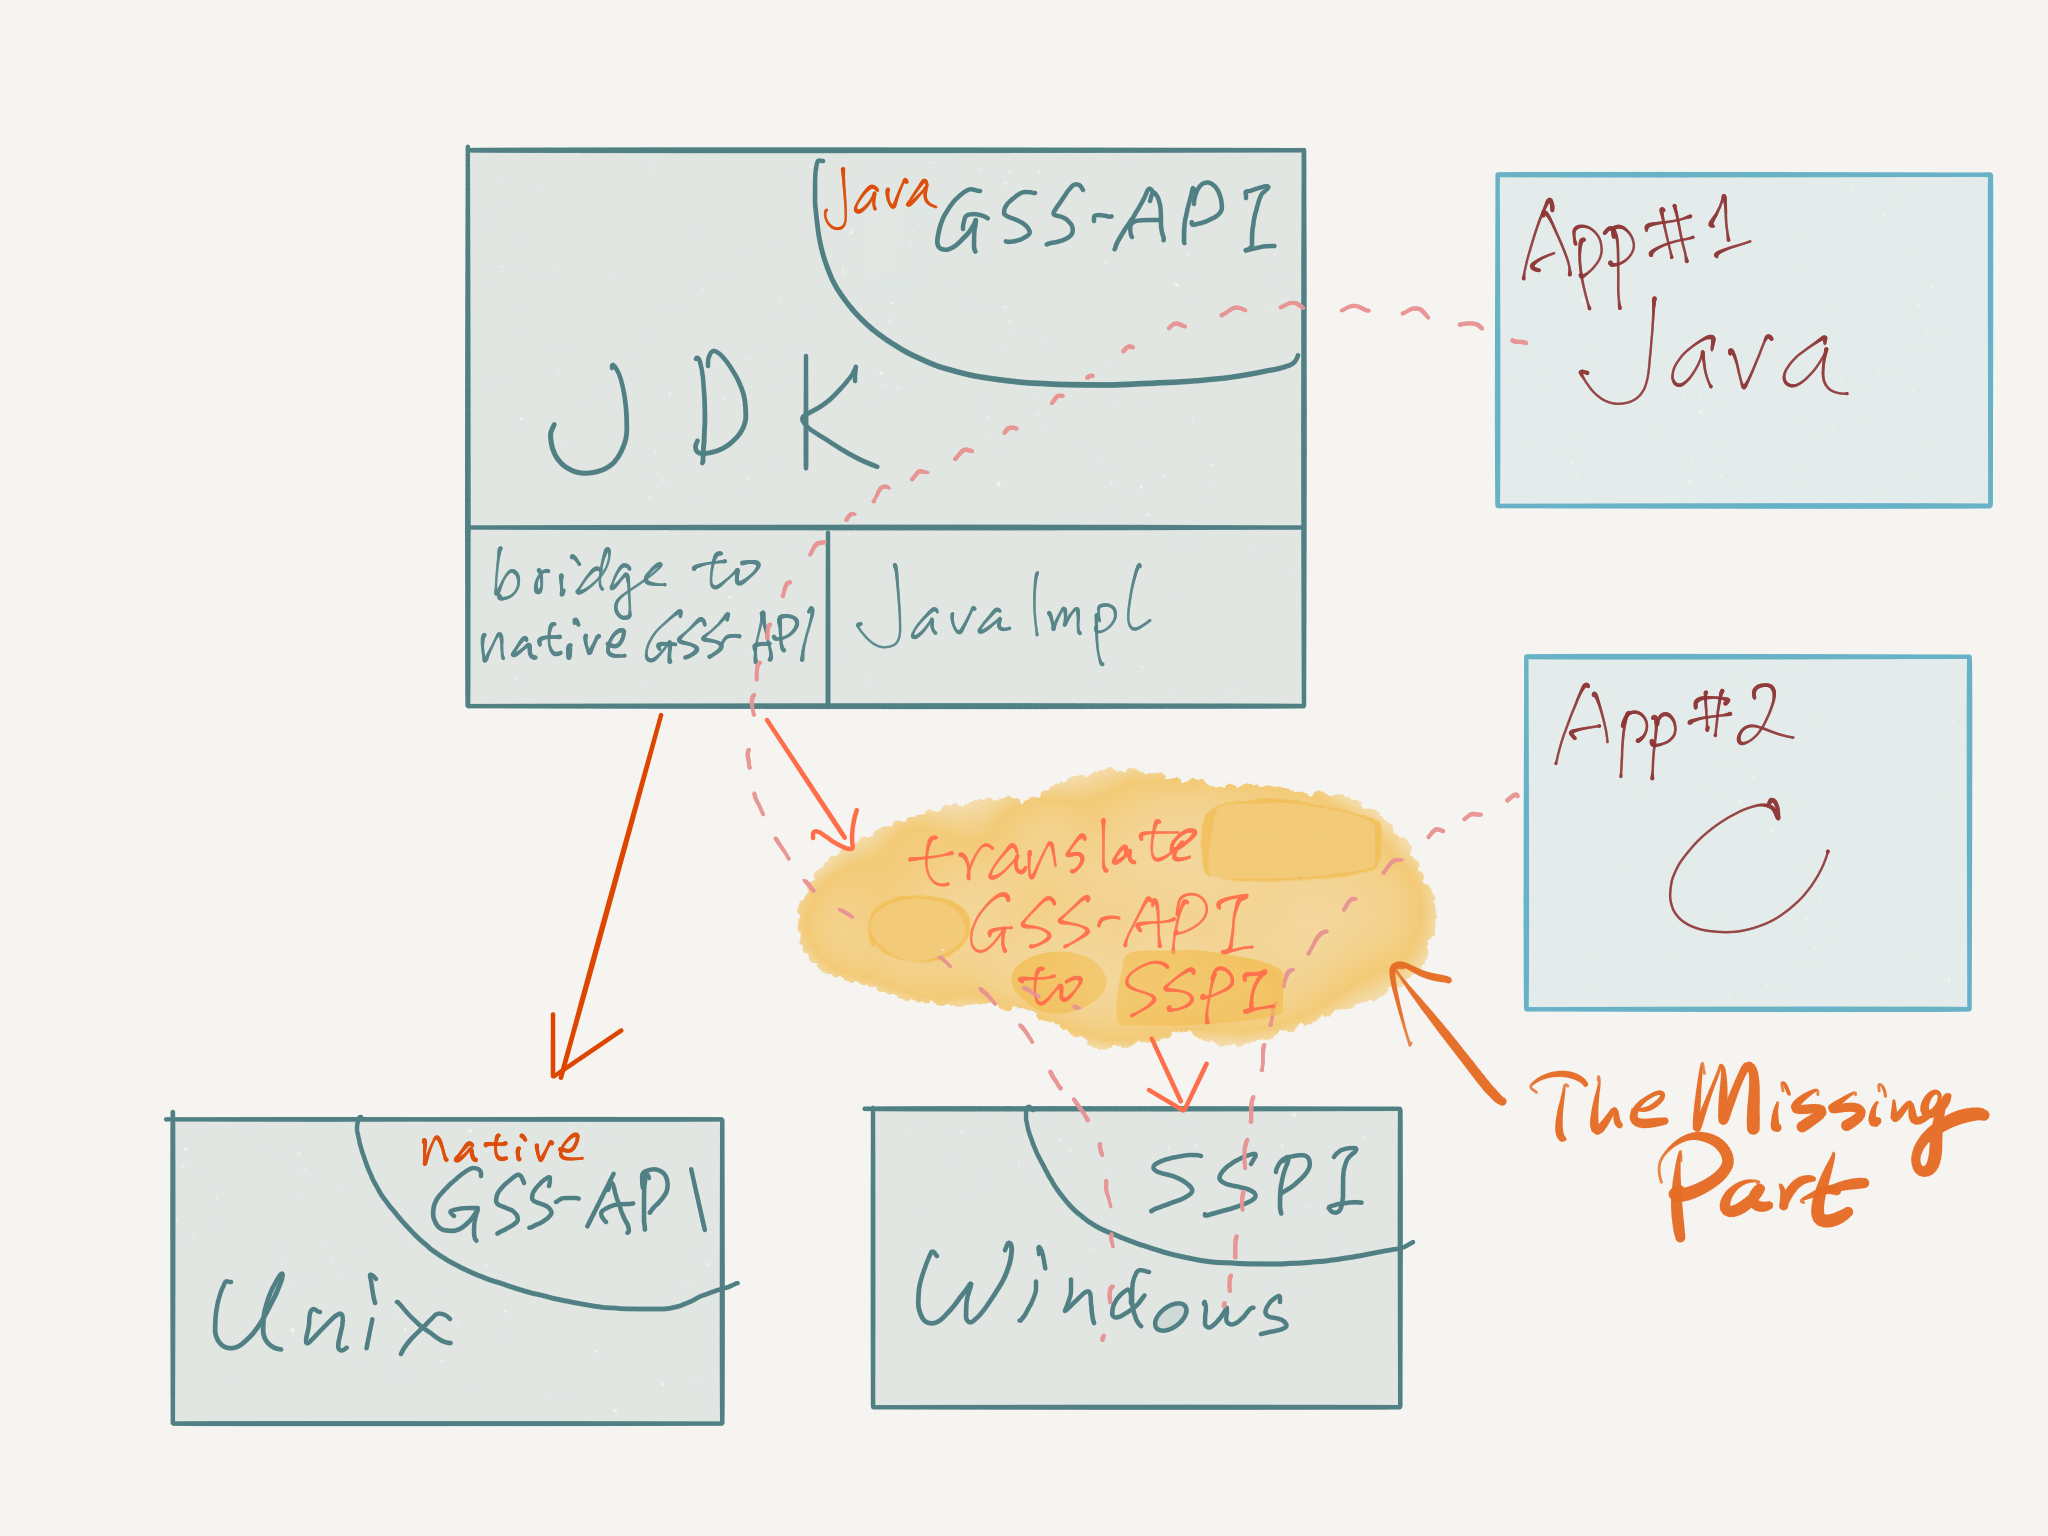 Java GSS-API
JDK
bridge to
native GSS-API
Java Impl
App#1
Java
App#2
C
translate
GSS-API
to SSPI
The Missing
Part
native
GSS-API
Unix
SSPI
Windows